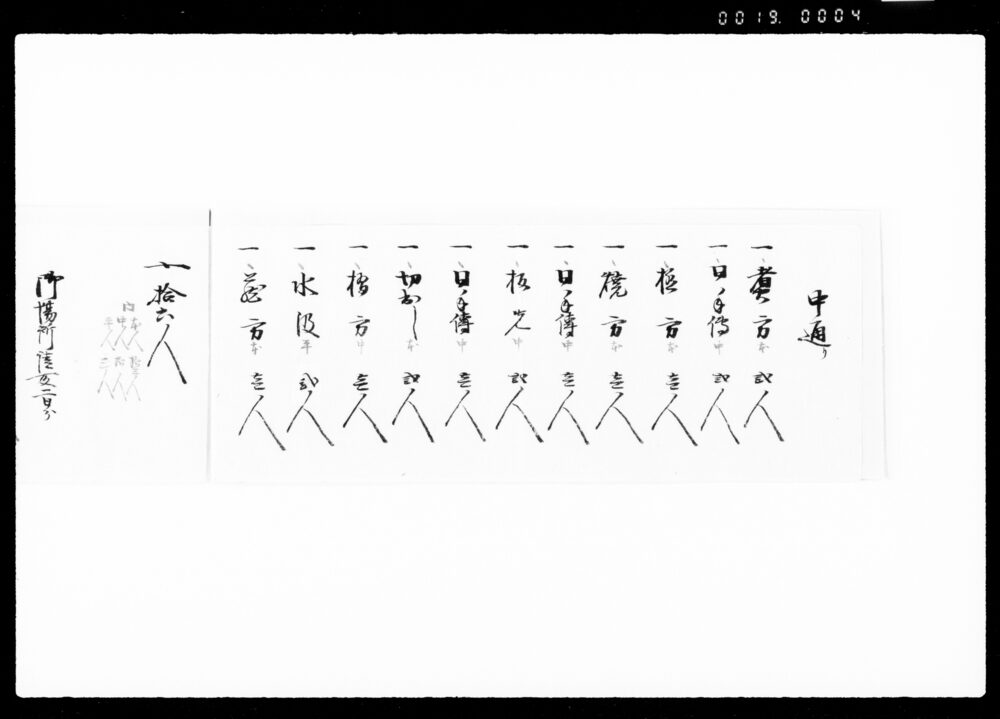 0019. 0004
中通り
一煮方本 弐人
一同手傳中 弐人
一極方本 壱人
一焼方本 壱人
一同手傳中 壱人
一板先中 弐人
一同手傳中 壱人
一切出し本 弐人
一方中 壱人
一水汲平 弐人
一方本 壱人
〆拾六人
内
本人
中人
平人 三人
御場所